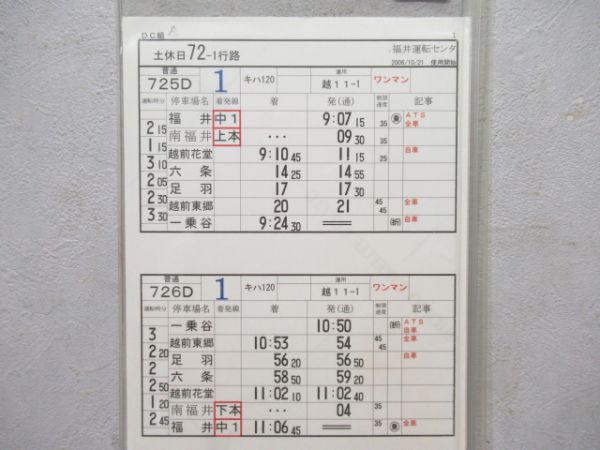 DC組 A 1
土休日72-1行路 福井運転センタ
2006/10/21 使用開始
普通 725D 1 キハ120 運用 越11-1 ワンマン
運転時分 停車場名 着発線 着 発(通) 制限速度 記事
福井 中1 9:07 15 35 ATS 全車
2 15 南福井 上本 … 09 30 35
1 15 越前花堂 9:10 45 11 15 25 自車
3 10 六条 14 25 14 55
2 05 足羽 17 17 30
2 30 越前東郷 20 21 45 45 全車
3 30 一乗谷 9:24 30 ══ 自車
普通 726D 1 キハ120 運用 越11-1 ワンマン
運転時分 停車場名 着発線 着 発(通) 制限速度 記事
一乗谷 10:50 ATS 自車
3 越前東郷 10:53 54 45 45 全車
2 20 足羽 56 20 56 50 自車
2 六条 58 50 59 20
2 50 越前花堂 11:02 10 11:02 40
1 20 南福井 下本 … 04 35
2 45 福井 中1 11:06 45 ══ 35 全車